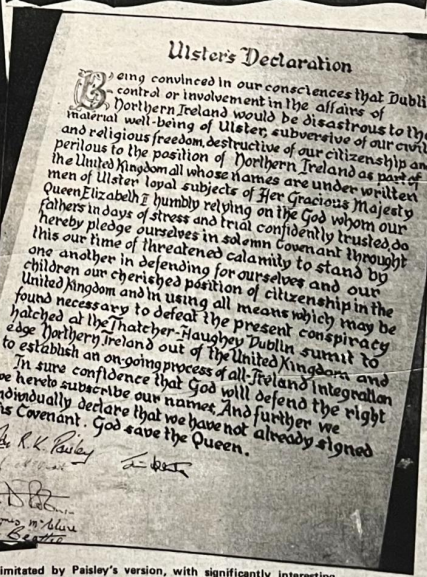 Ulster's Declaration
Being convinced in our consciences that Dubli
control or involvement in the affairs of
Northern Ireland would be disastrous to the
material well-being of Ulster, subversive of our civil
and religious freedom, destructive of our citizenship an
perilous to the position of Northern Ireland as part of
the United Kingdom all whose names are under written
men of Ulster loyal subjects of Her Gracious Majesty
Queen Elizabeth II humbly relying on the God whom our
fathers in days of stress and trial confidently trusted, do
hereby pledge ourselves in solemn Covenant throught
this our time of threatened calamity to stand by
one another in defending for ourselves and our
children our cherished position of citizenship in the
United Kingdom and in using all means which may be
found necessary to defeat the present conspiracy
hatched at the Thatcher-Haughey Dublin sumit to
edge Northern Ireland out of the United Kingdom and
to establish an on-going process of all-Ireland integration
In sure confidence that God will defend the right
we hereto subscribe our names. And further we
ndividually declare that we have not already signed
his Covenant. God save the Queen.
R.K. Paisley
imitated by Paisley's version, with significantly interesting